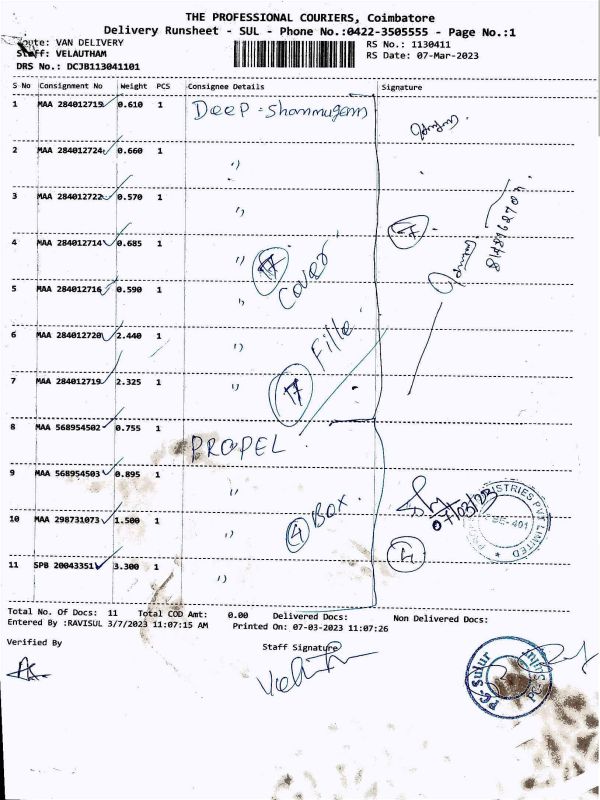 THE PROFESSIONAL COURIERS, Coimbatore
Delivery Runsheet - SUL - Phone No.:0422-3505555 - Page No.:1
Route: VAN DELIVERY
RS No.: 1130411
Staff: VELAUTHAM
RS Date: 07-Mar-2023
DRS No.: DCJB113041101
S No Consignment No Weight PCS Consignee Details Signature
1 MAA 284012719 0.610 1 Deep - Shanmugam
2 MAA 284012724 0.660 1 "
3 MAA 284012722 0.570 1 "
7
4 MAA 284012714 0.685 1 "
17 Cover
8148962707
5 MAA 284012716 0.590 1 "
6 MAA 284012720 2.440 1 "
Fille
7 MAA 284012719 2.325 1 "
17
8 MAA 568954502 0.755 1 PROPEL
9 MAA 568954503 0.895 1 "
07/03/23
10 MAA 298731073 1.500 1 "
4 Box
4
11 SPB 20043351 3.300 1 "
Total No. Of Docs: 11 Total COD Amt: 0.00 Delivered Docs: Non Delivered Docs:
Entered By :RAVISUL 3/7/2023 11:07:15 AM Printed On: 07-03-2023 11:07:26
Verified By
Staff Signature